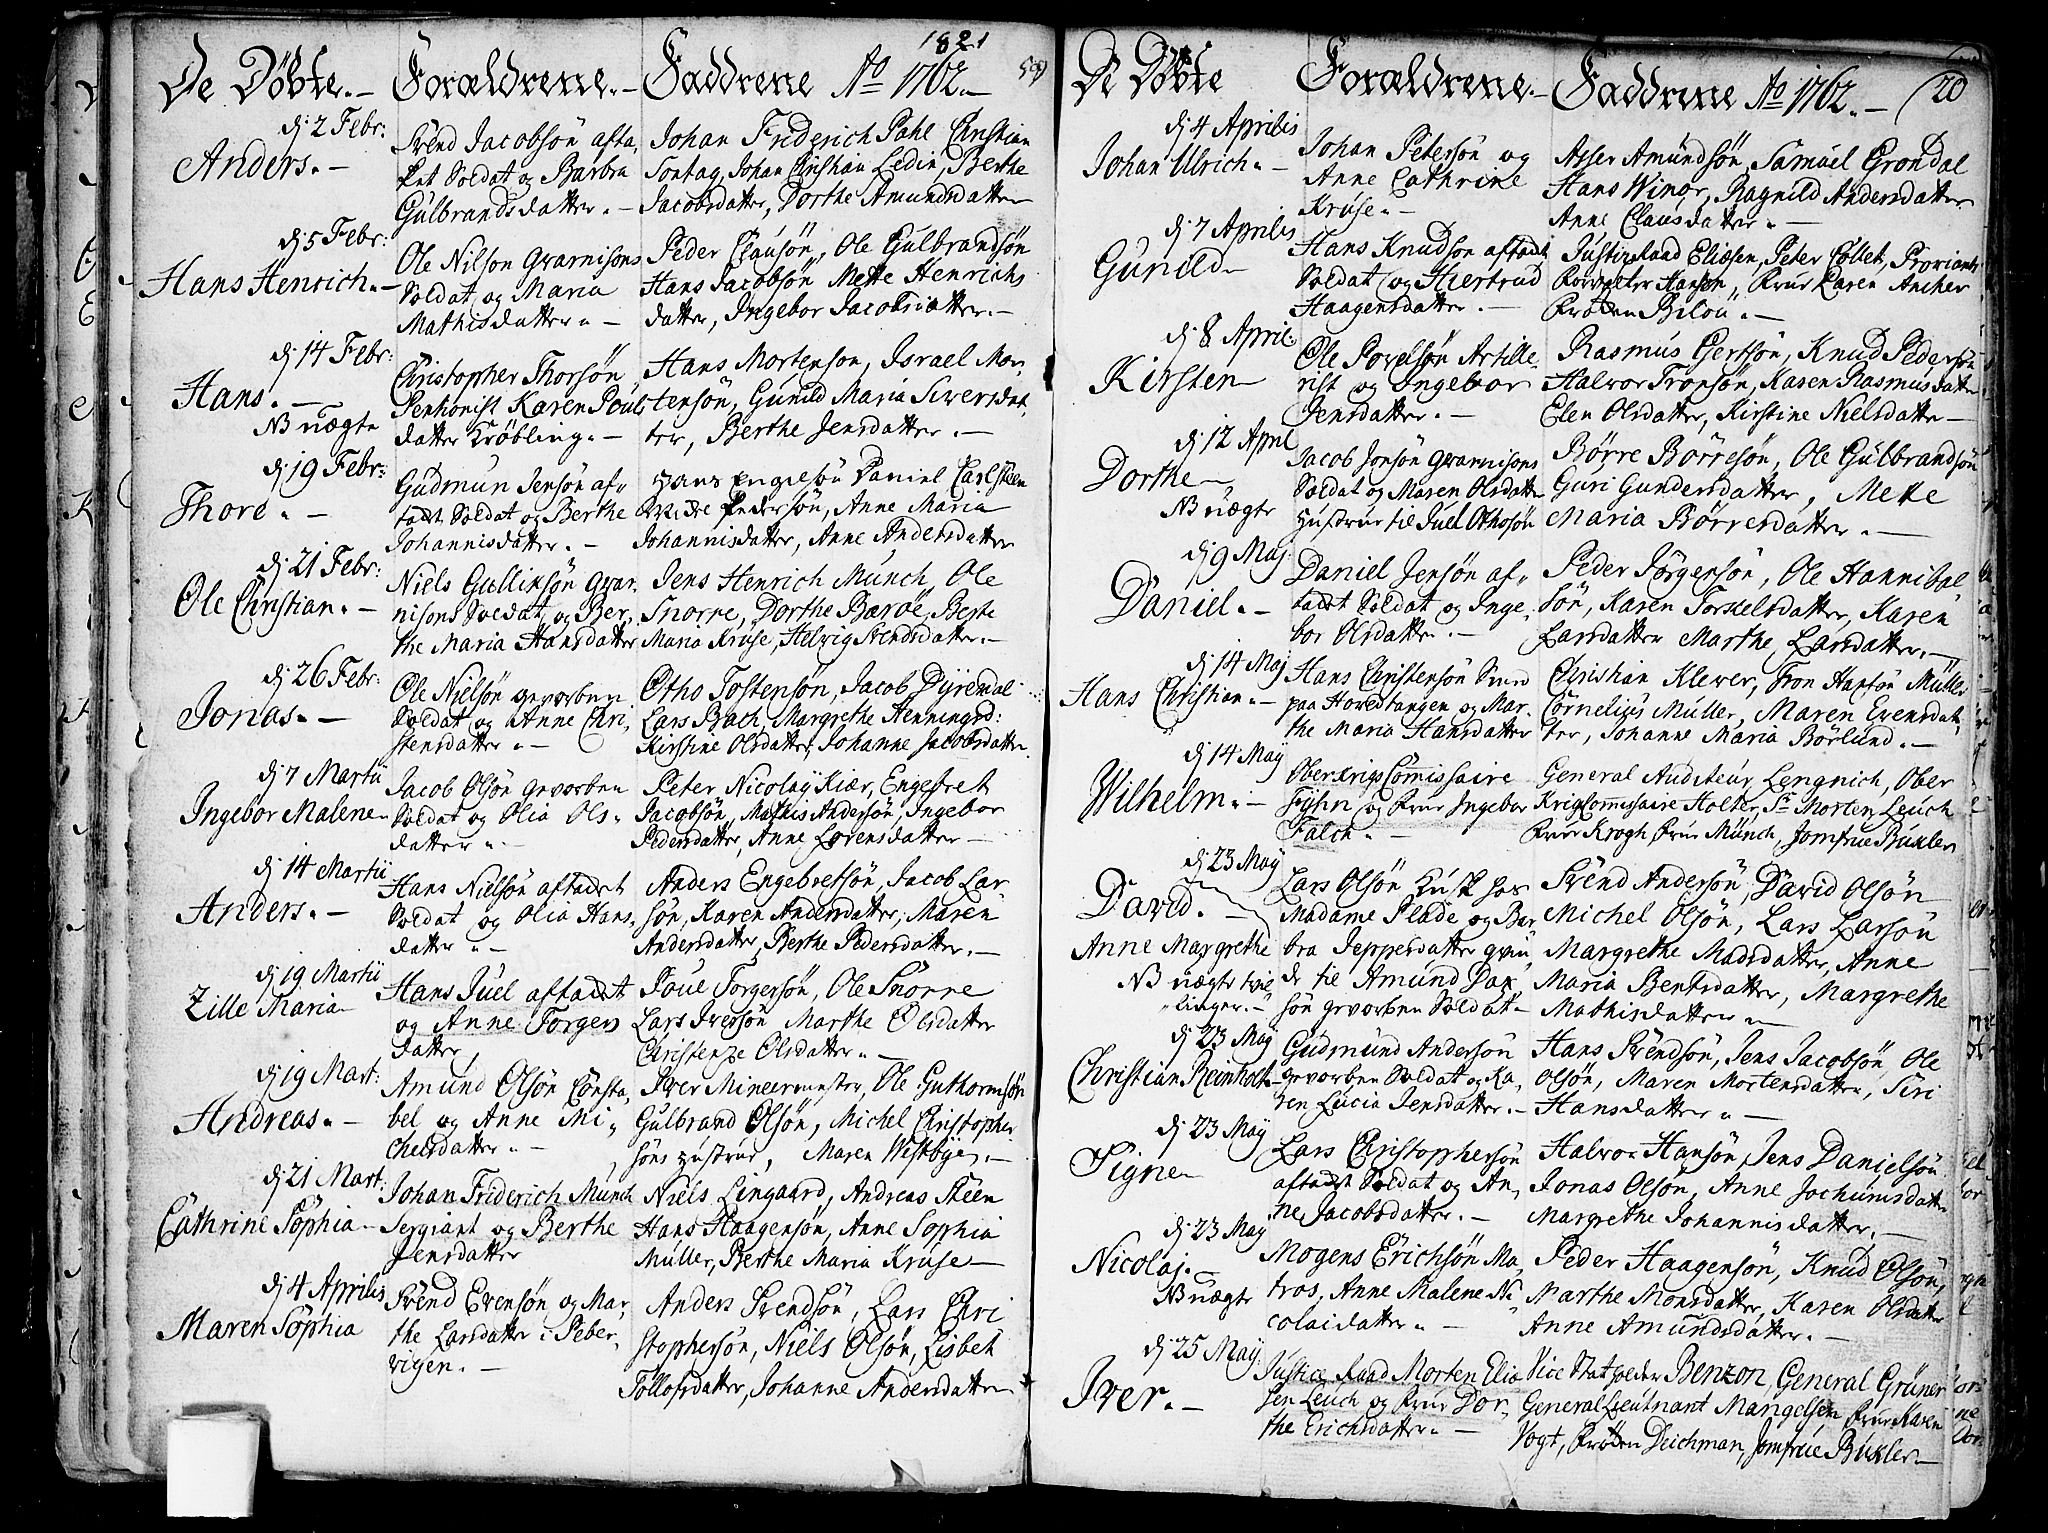 1821
59
De Döbte. — Forældrene. — Faddrene Ao 1762. —
dj 2 Febr:
Anders. —
Svend Jacobsön afta,
ket Soldat og Barbra
Gulbrandsdatter. —
Johan Friderich Pahl Christian
Sontag, Johan Christian Ledin, Berthe
Jacobsdatter, Dorthe Amundsdatter
dj 5 Febr:
Hans Henrich. —
Ole Nilson Gvarnisons
Soldat og Maria
Mathisdatter. —
Peder Clausön, Ole Gulbrandsön
Hans Jacobsön Mette Henrichs
datter, Ingebor Jacobsdatter. —
dj 14 Febr:
Hans. —
NB uægte
Christopher Thorsön
Penhonist Karen Pouls
datter Kröbling. —
Hans Mortenson, Israel Mor,
tensön, Gunild Maria Siversdat,
ter, Berthe Jensdatter. —
dj 19 Febr:
Thore. —
Gudmun Jensön af,
tackt Soldat og Berthe
Johannisdatter. —
Hans Engelsön Daniel Carlsteen
Pedersön, Anne Maria
Johannisdatter, Anne Andersdatter
dj 21 Febr:
Ole Christian. —
Niels Gullinsön Gvar,
nisons Soldat og Ber,
the Maria Hansdatter
Jens Henrich Munch, Ole
Snorre, Dorthe Baröe, Berte
Maria Kruse, Helvig Svendsdatter. —
dj 26 Febr:
Jonas. —
Ole Nielsön gevorben
Soldat og Anne Chri,
stensdatter. —
Otho Tostensön, Jacob Dyrendal
Lars Brach, Margrethe Henningsd:
Kirstine Olsdatter, Johanne Jacobsdatter
dj 7 Martii
Ingebor Malene —
Jacob Olsön gevorben
Soldat og Olia Ols,
datter. —
Peter Nicolay Kiær, Engebret
Jacobsön, Mathis Andersön, Ingebor
Pedersdatter, Anne Lorensdatter —
dj 14 Martii
Anders. —
Hans Nielsön aftackt
Soldat og Olia Hans,
datter. —
Anders Engebretsön, Jacob Lar
sön, Karen Andersdatter, Maren
Andersdatter, Berthe Pedersdatter. —
dj 19 Martii
Zille Maria —
Hans Juel aftackt
og Anne Torgers
datter
Poul Torgersön, Ole Snorre
Lars Iversön Marthe Olsdatter
Christenze Olsdatter. —
dj 19 Mart:
Andreas. —
Amund Olsön Consta,
bel og Anne Mi,
chelsdatter. —
Iver Mineermester, Ole Guthormsön
Gulbrand Olsön, Michel Christopher
söns Hustrue, Maren Westbye. —
dj 21 Mart:
Cathrine Sophia —
Johan Friderich Munch
Sergiant og Berthe
Jensdatter
Niels Lingaard, Andreas Steen
Hans Haagensön, Anne Sophia
Müller, Berthe Maria Kruse —
dj 4 Aprilis
Maren Sophia
Svend Evensön og Mar,
the Larsdatter i Peber,
vigen. —
Anders Svendsön, Lars Chri
stophersön, Niels Olsön, Lisbet
Tollofsdatter, Johanne Andersdatter
De Döbte Forældrene. — Faddrene Ao 1762. —
20
dj 4 Aprilis
Johan Ulrich. —
Johan Petersön og
Anne Cathrine
Kruse. —
Asser Amundsön, Samuel Grondal
Hans Winor, Ragnild Andersdatter
Anne Clausdatter. —
dj 7 Aprilis
Gunild —
Hans Knudsön aftackt
Soldat og Hiertrud
Haagensdatter. —
Justitz Raad Eliesen, Peter Collet, Proviant
Forvalter Hanson, Frue Karen Ancher
Fröken Bilou. —
dj 8 April:
Kirsten —
Ole Povelsön Artille,
rist og Ingebor
Jensdatter. —
Rasmus Gertsön, Knud Pedersön
Halvor Tronsön, Karen Rasmusdatt
Elen Olsdatter, Kirstine Nielsdatter —
dj 12 April
Dorthe —
NB uægte
Jacob Jonsön Gvarnisons
Soldat og Maren Olsdatter
Hustrue til Juel Othosön
Börre Börresön, Ole Gulbrandsön
Guri Gundersdatter, Mette
Maria Börresdatter. —
dj 9 Maj
Daniel. —
Daniel Jensön af,
tackt Soldat og Inge,
bor Olsdatter. —
Peder Jörgensön, Ole Hannibal
sön, Karen Torkelsdatter, Karen
Larsdatter Marthe Larsdatter. —
dj 14 Maj
Hans Christian. —
Hans Christensön Smed
paa Hovedtangen og Mar,
the Maria Hansdatter
Christian Klever, Tron Hansön Müller
Cornelius Müller, Maren Evensdat,
ter, Johanne Maria Börlund. —
dj 14 May
Wilhelm. —
Oberkrigs Commissaire
Fyhn og Frue Ingebor
Falch. —
General Auditeur Lengnich, Ober
Krigscommissaire Holter, Sr Morten Leuch
Frue Krogh, Frue Munch, Jomfrue Buxler
dj 23 May
David. —
Anne Margrethe
NB uægte tvil
linger. —
Lars Olsön Kusk hos
Madame Plade og Bar,
bra Jeppesdatter qvin,
de til Amund Dax,
sön gevorben Soldat —
Svend Andersön, David Olsön
Michel Olsön, Lars Larsön
Margrethe Madsdatter, Anne
Maria Bentsdatter, Margrethe
Mathisdatter —
dj 23 May
Christian Reinholt —
Gudmund Andersön
gevorben Soldat og Ka,
ren Lucia Jensdatter. —
Hans Svendsön, Jens Jacobsön, Ole
Olsön, Maren Mortensdatter, Siri
Hansdatter. —
dj 23 May
Signe —
Lars Christophersön
aftackt Soldat og An,
ne Jacobsdatter. —
Halvor Hansön, Jens Danielsön
Jonas Olsön, Anne Jochumsdatter
Margrethe Johannisdatter. —
dj 23 May
Nicolaj. —
NB uægte
Mogens Erichsön Ma,
tros, Anne Malene Ni,
colaidatter. —
Peder Haagensön, Knud Olsön,
Marthe Monsdatter, Karen Olsdatter
Anne Amundsdatter. —
dj 25 May:
Iver. —
Justice Raad Morten Elie
sen Leuch og Frue Dor,
the Erichsdatter. —
Vice Statholder Benzon, General Grüner
General Lieutnant Mangelsen Frue Karen
Vogt, Fröken Deichman, Jomfrue Buxler —